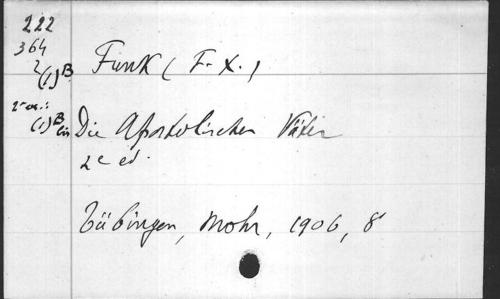 222
364
2
(1)B
Funk (F. X.)
2e ex.:
(1)B bis
Die Apostolischen Väter
2e ed.
Tübingen, Mohr, 1906, 8°